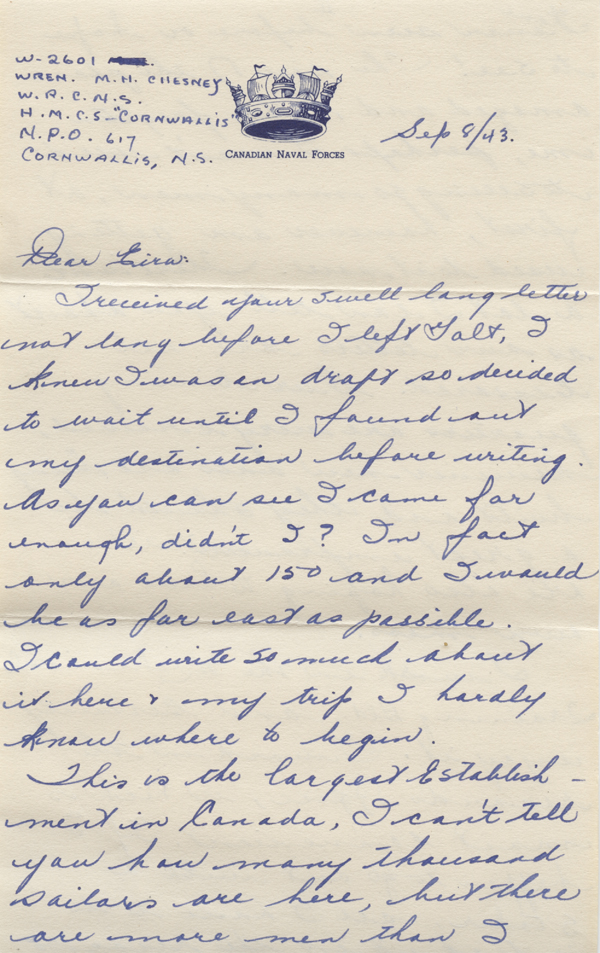 W-2601
WREN. M. H. CHESNEY
W. R. C. N. S.
H. M. C. S - "CORNWALLIS"
N. P. O. 617
CORNWALLIS, N.S.
CANADIAN NAVAL FORCES
Sep 8/43.
Dear
I received your swell long letter
not long before I left Galt, I
knew I was on draft so decided
to wait until I found out
my destination before writing.
As you can see I came far
enough, didn't I? In fact
only about 150 and I would
be as far east as possible.
I could write so much about
it here & my trip I hardly
know where to begin.
This is the largest Establish-
ment in Canada, I can't tell
you how many thousand
sailors are here, but there
are more men than I